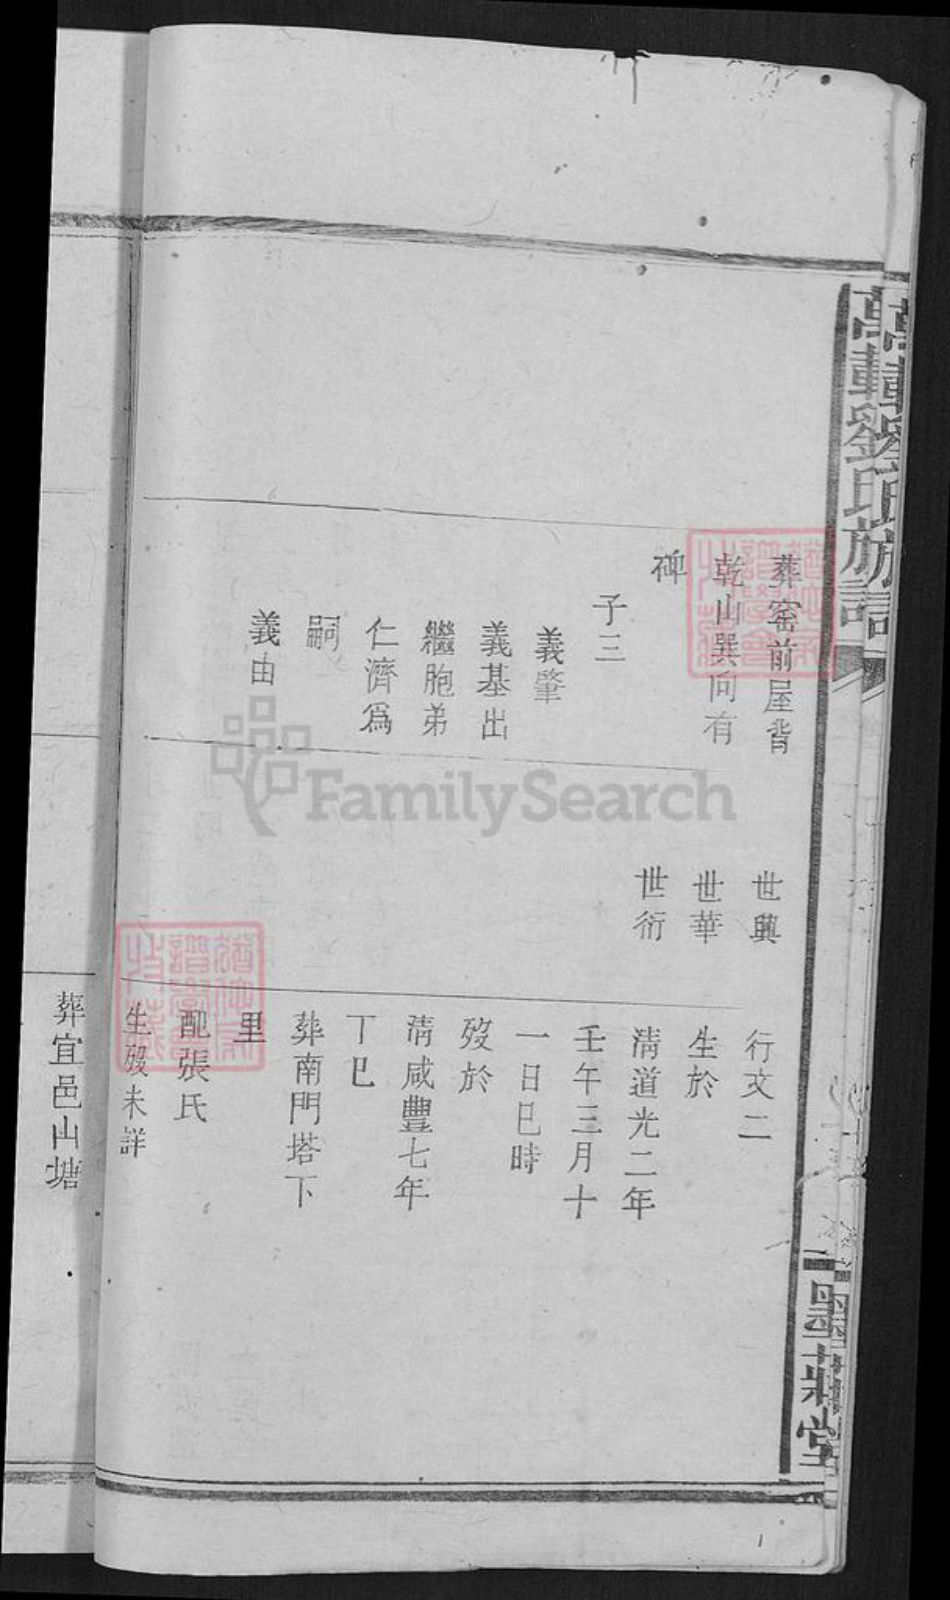 萬載劉氏族譜
墨莊堂
葬窑前屋背
乾山巽向有
碑
子三
義肇
義基出
繼胞弟
仁濟爲
嗣
義由
世興
世華
世衍
行文二
生於
淸道光二年
壬午三月十
一日巳時
歿於
淸咸豐七年
丁巳
葬南門塔下
里
配張氏
生歿未詳
葬宜邑山塘
FamilySearch